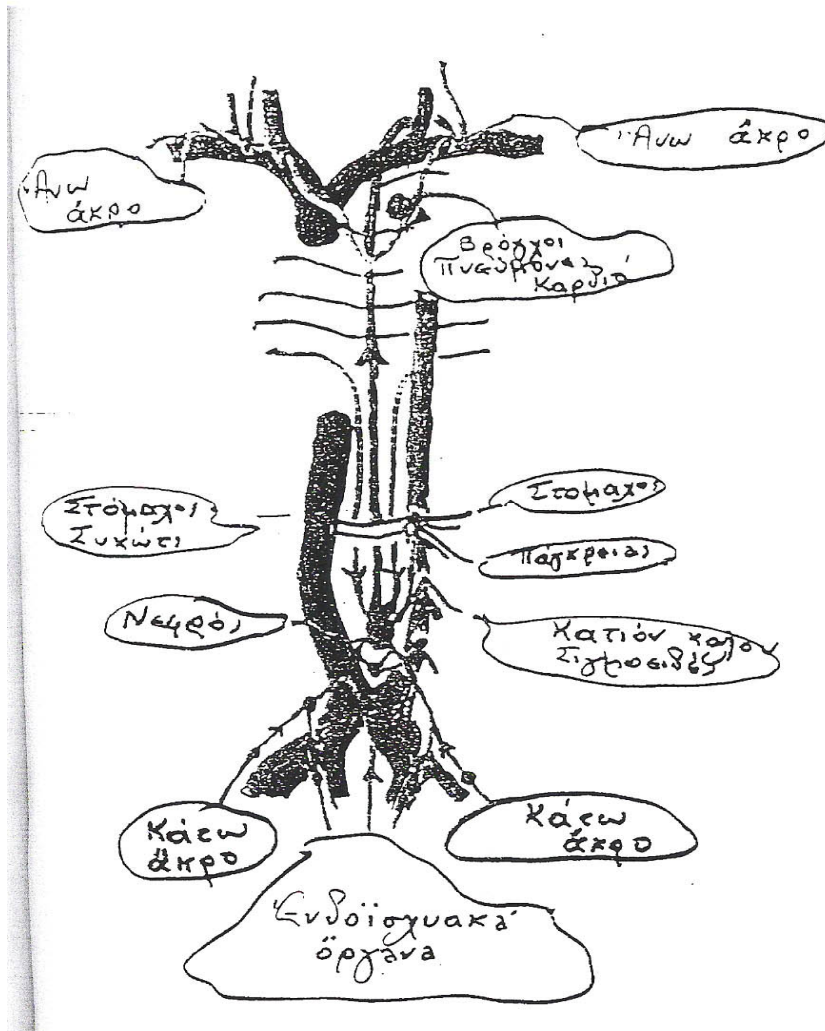 Ἄνω ἄκρο
Ἄνω
ἄκρο
Βρόγχοι
Πνεύμονες
Καρδιά
Στόμαχος
Συκώτι
Στόμαχος
Πάγκρεας
Νεφρός
Κατιόν κόλον
Σιγμοειδές
Κάτω
ἄκρο
Κάτω
ἄκρο
Ἐνδοϊσχυακά
ὄργανα